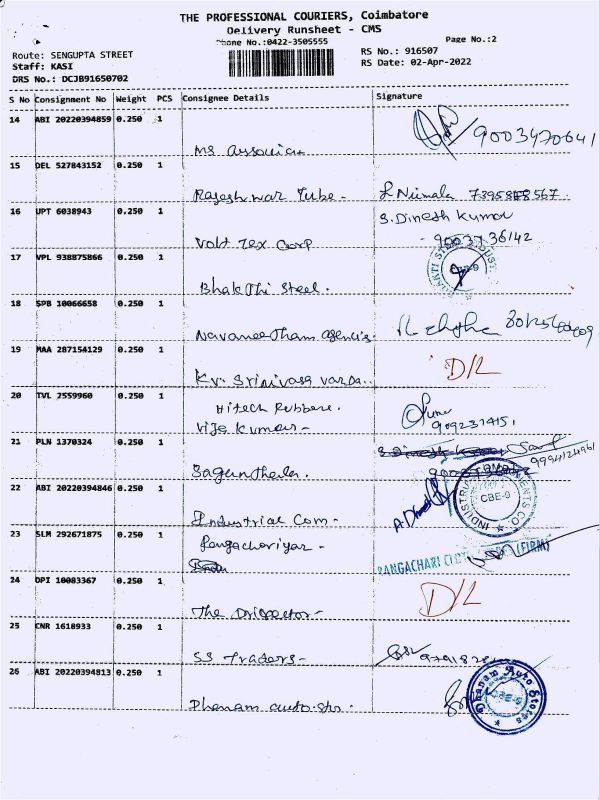 THE PROFESSIONAL COURIERS, Coimbatore
Delivery Runsheet - CMS
Phone No.:0422-3505555
Page No.:2
Route: SENGUPTA STREET
RS No.: 916507
Staff: KASI
RS Date: 02-Apr-2022
DRS No.: DCJB91650702
S No Consignment No Weight PCS Consignee Details Signature
14 ABI 20220394859 0.250 1
MS 9003470641
15 DEL 527843152 0.250 1
Rajeshwar Tube - 
16 UPT 6038943 0.250 1 S. Dinesh Kumar
Volt Tex Corp - 9003736142
17 VPL 938875866 0.250 1
Bhakthi Steel.
18 SPB 10066658 0.250 1
Navaneetham agencis.
19 MAA 287154129 0.250 1 D/L
K.V. Srinivasa
20 TVL 2559960 0.250 1
Hitech Rubbers.
Vije Kumar - 909231415
21 PLN 1370324 0.250 1
9994124961
22 ABI 20220394846 0.250 1
CBE-9
Industrial Com -
23 SLM 292671875 0.250 1
Rengachariyar -
RANGACHARI (FIRM)
24 OPI 10083367 0.250 1 D/L
The
25 CNR 1618933 0.250 1
SS Traders -
26 ABI 20220394813 0.250 1
Dhanam Auto Stores
CBE-9
Dhanam auto